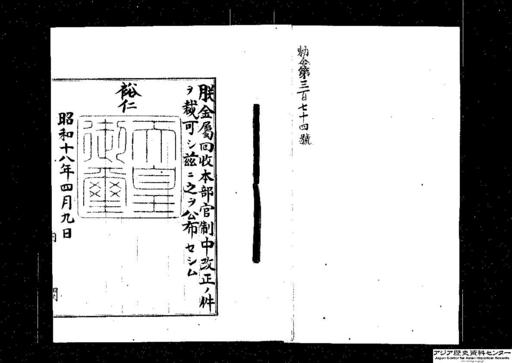 勅令第三百七十四號
朕金屬回收本部官制中改正ノ件
ヲ裁可シ茲ニ之ヲ公布セシム
裕仁
天皇
御璽
昭和十八年四月九日
内閣
アジア歴史資料センター
Japan Center for Asian Historical Records